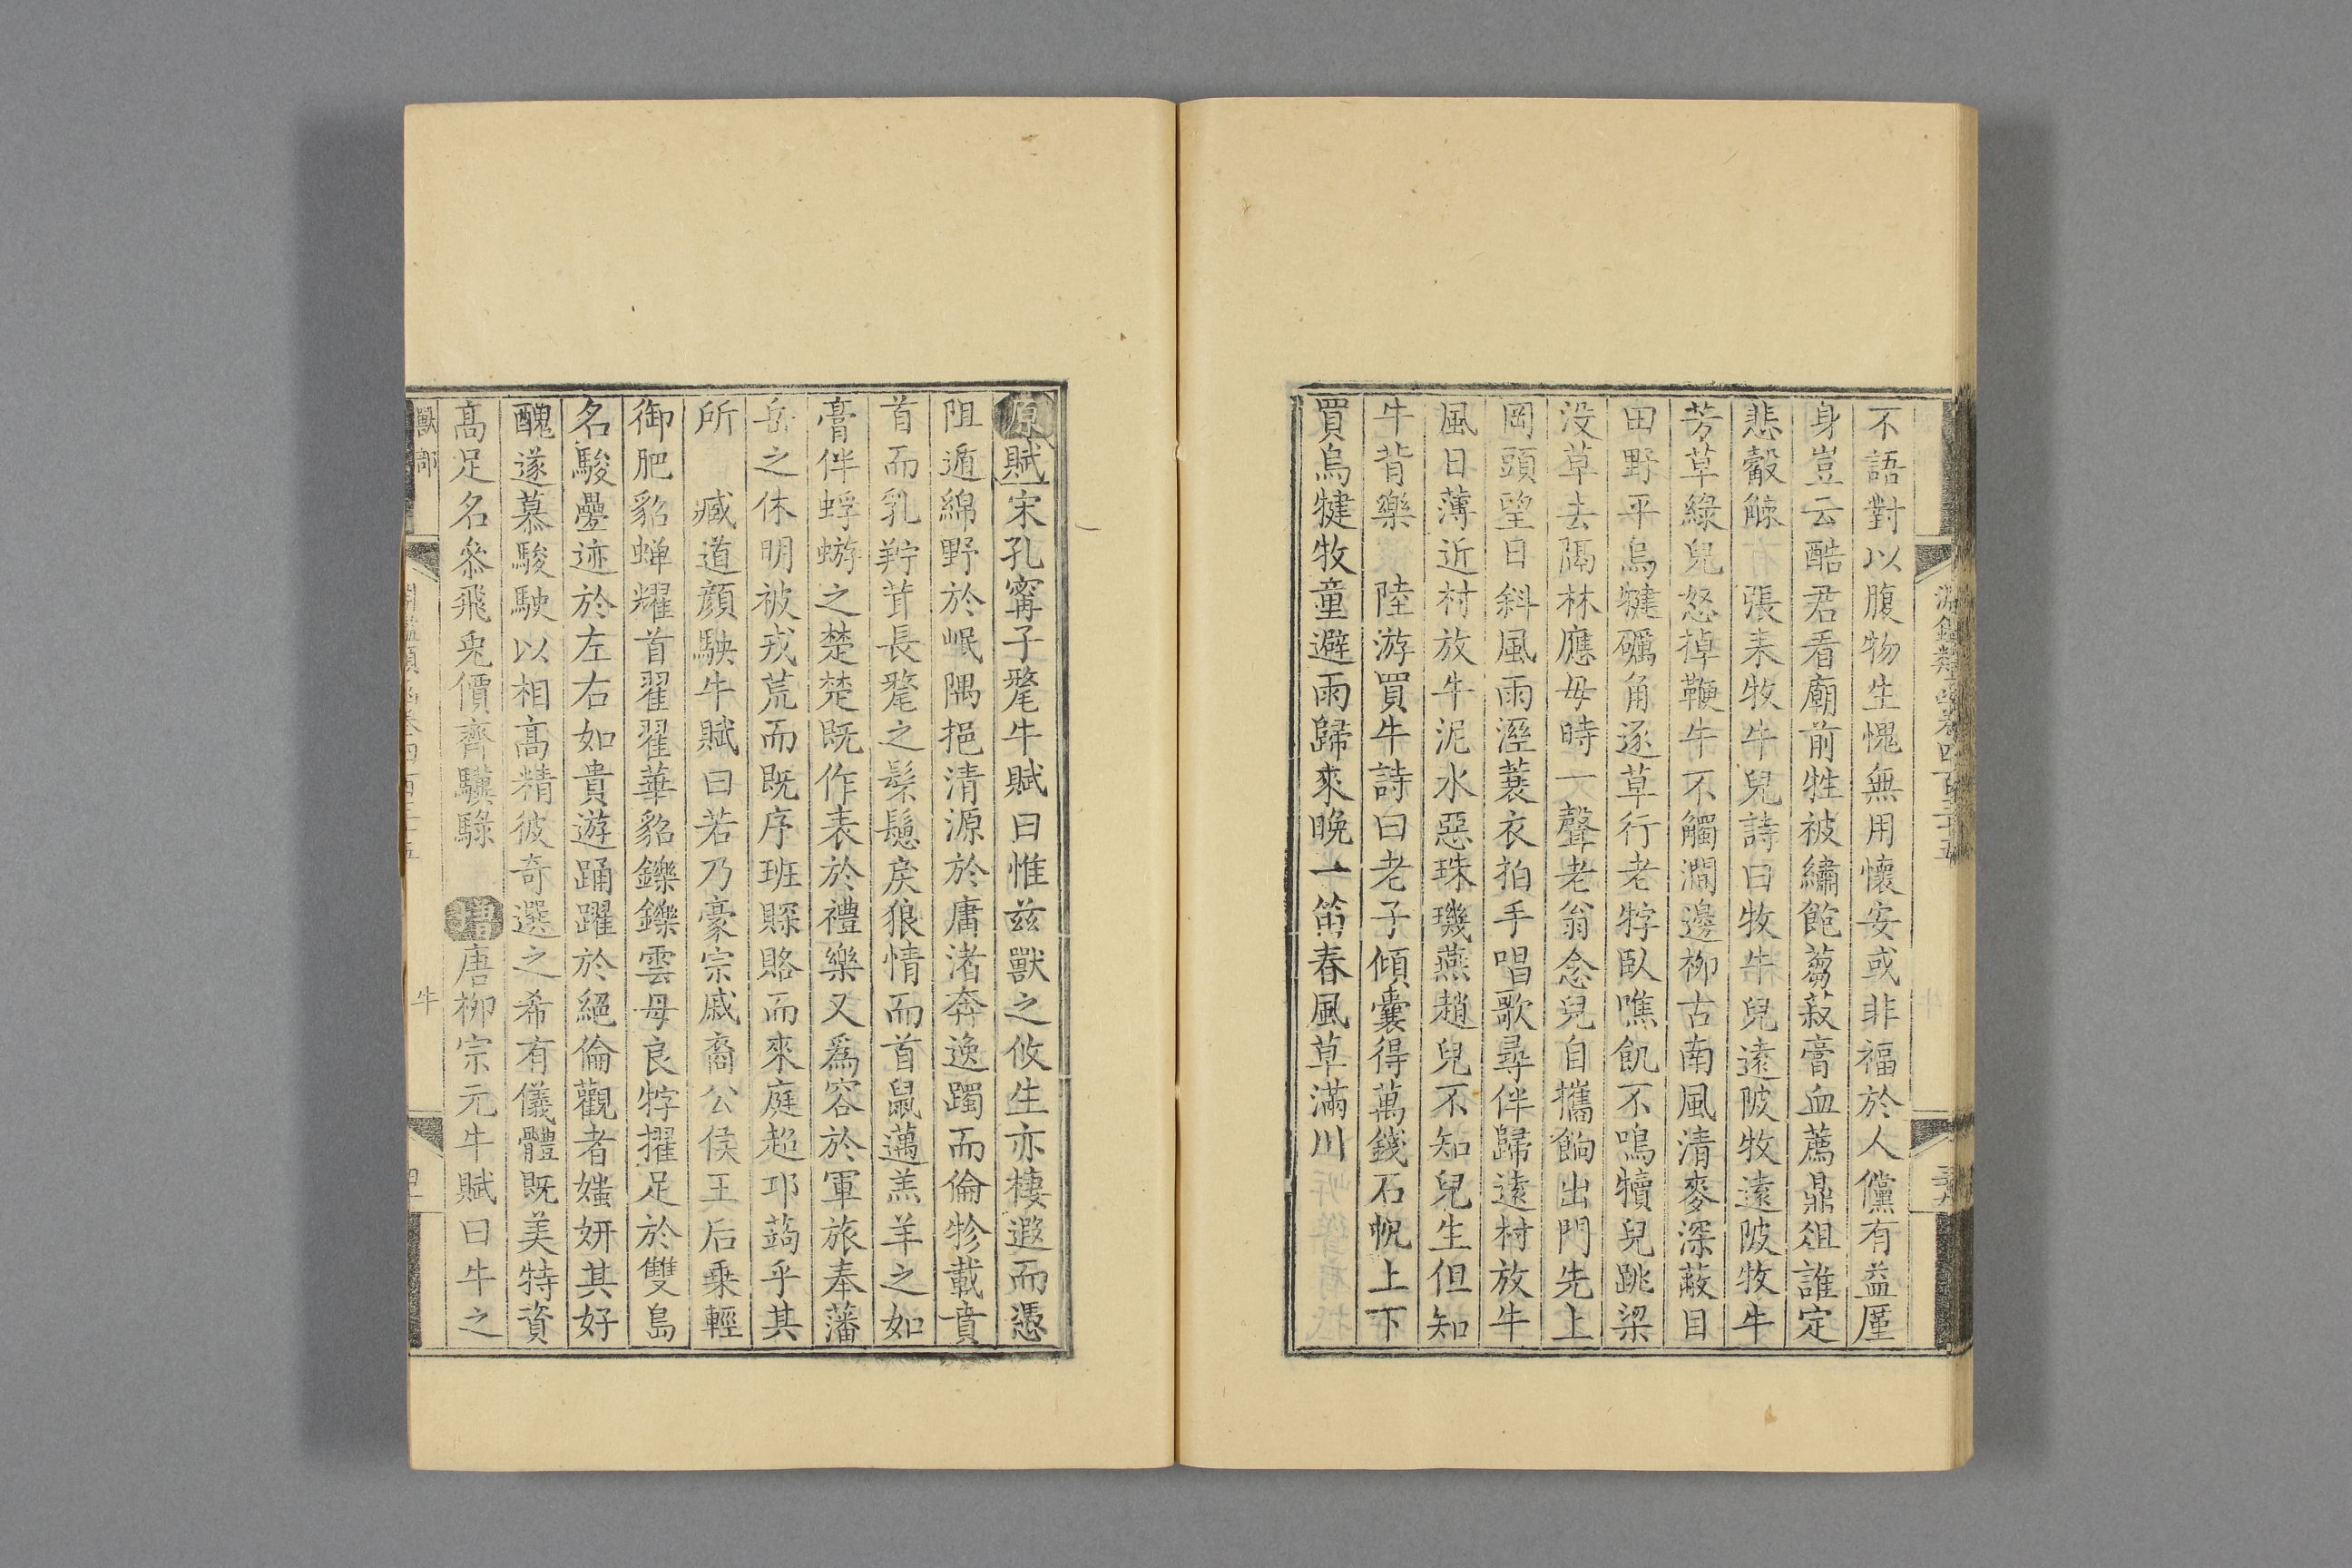 不語對以腹物生愧無用懷安或非福於人儻有益厪
身豈云酷君看廟前牲被繡飽芻菽膏血薦鼎俎誰定
悲觳觫　張耒牧牛兒詩曰牧牛兒遠陂牧遠陂牧牛
芳草綠兒怒掉鞭牛不觸澗邊柳古南風清麥深蔽目
田野平烏犍礪角逐草行老牸臥噍飢不鳴犢兒跳梁
没草去隔林應母時一聲老翁念兒自攜餉出門先上
岡頭望日斜風雨溼蓑衣拍手唱歌尋伴歸遠村放牛
風日薄近村放牛泥水惡珠璣燕趙兒不知兒生但知
牛背樂　陸游買牛詩曰老子傾囊得萬錢石帆上下
買烏犍牧童避雨歸來晚一笛春風草滿川
原賦宋孔寗子氂牛賦曰惟兹獸之攸生亦棲遐而憑
阻遁綿野於岷隅挹清源於庸渚奔逸躅而倫牝載賁
首而乳羜茸長氂之髹鬆戾狼情而首鼠邁羔羊之如
膏伴蜉蝣之楚楚既作表於禮樂又爲容於軍旅奉藩
岳之休明被戎荒而既序班賝賂而來庭超邛蒟乎其
所　臧道顔駃牛賦曰若乃豪宗戚裔公侯王后乗輕
御肥貂蟬耀首翟翟華貂鑠鑠雲母良牸擢足於雙島
名駿疊迹於左右如貴遊踊躍於絕倫觀者媸妍其好
醜遂慕駿駛以相高精彼奇選之希有儀體既美特資
髙足名叅飛兎價齊驥騄　增唐栁宗元牛賦曰牛之
獸部
牛